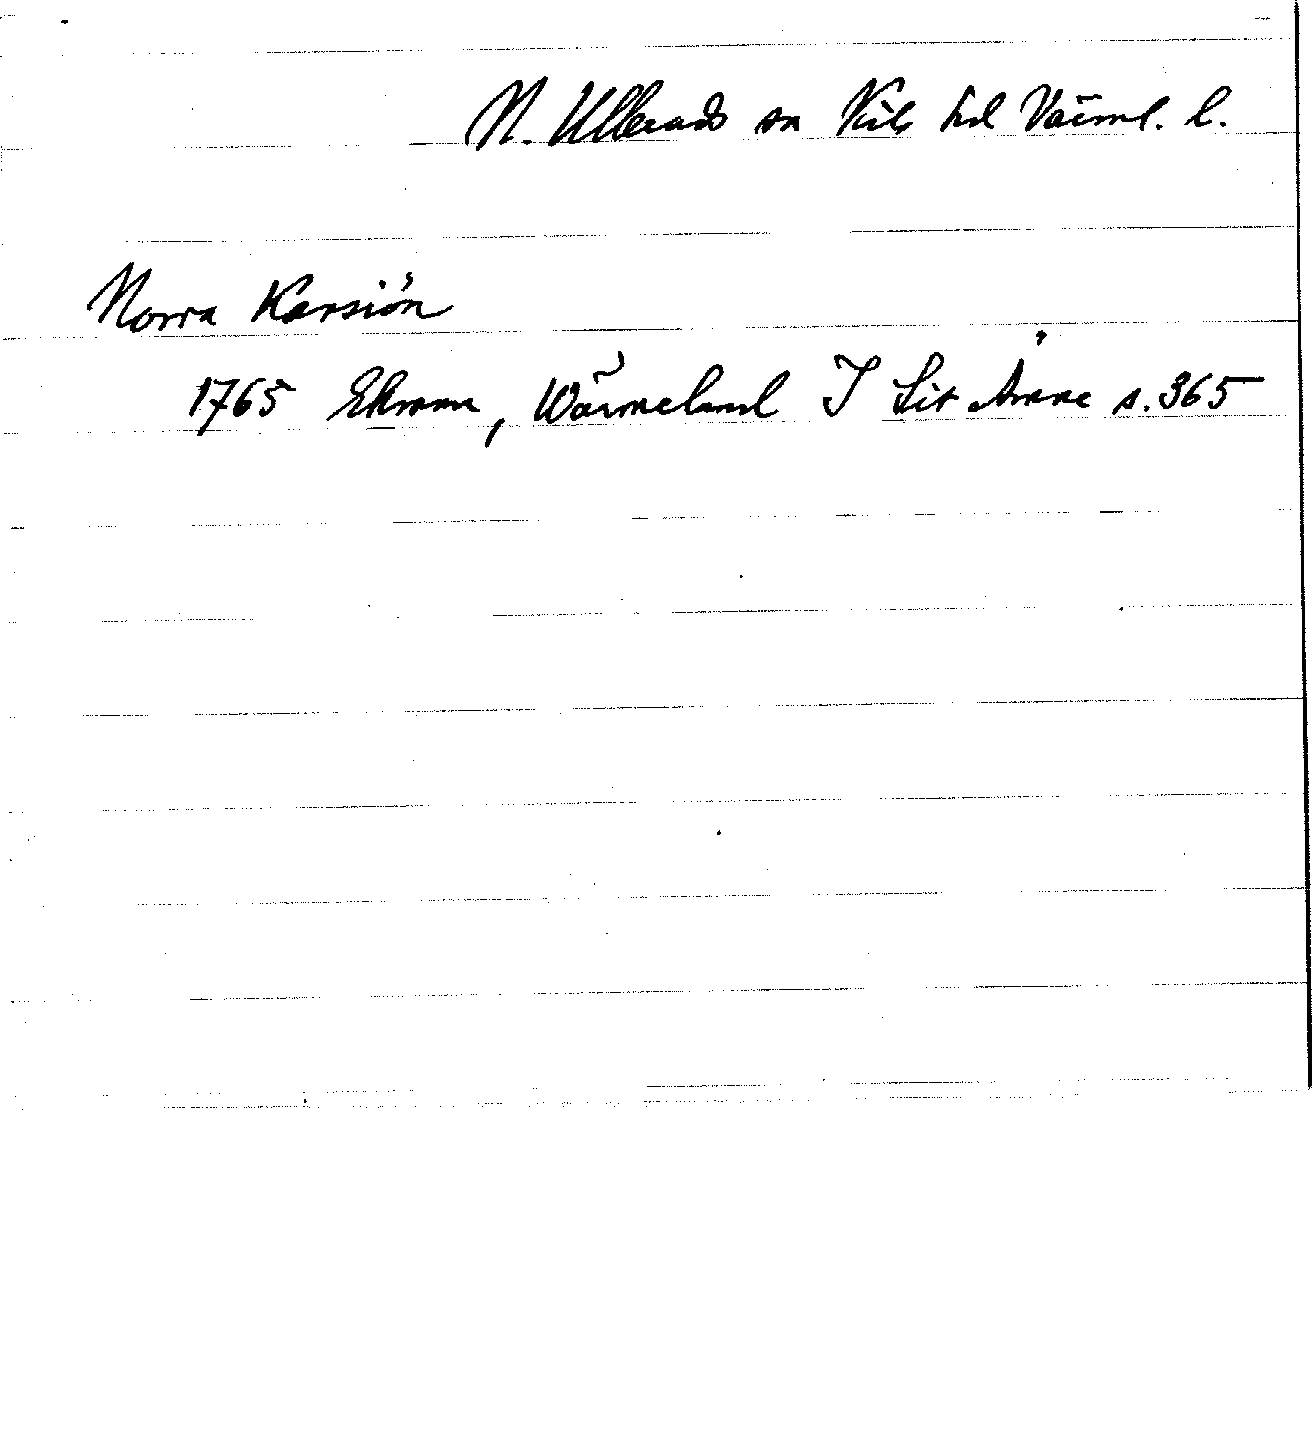 N. Ullerads sn Kils hd Värml. l.
Norra Karsiön
1765 Ekman, Wärmeland I Sit Ämne s. 365